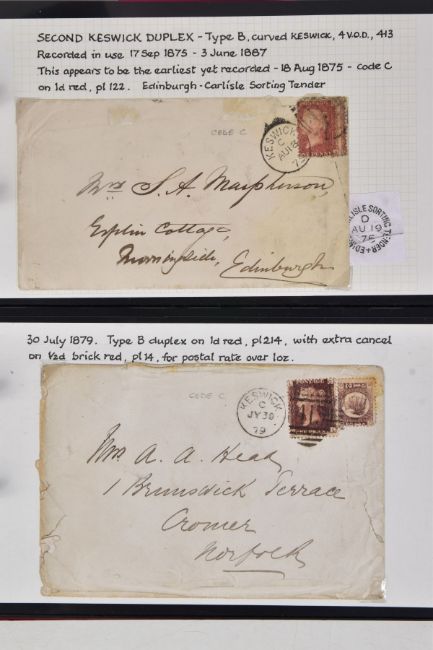 SECOND KESWICK DUPLEX - Type B, curved KESWICK, 4 V.O.D., 413
Recorded in use 17 Sep 1875 - 3 June 1887
This appears to be the earliest yet recorded - 18 Aug 1875 - Code C
on 1d red, pl 122. Edinburgh - Carlisle Sorting Tender
CODE C
KESWICK
C
AU 18
75
Mrs S. A. Macpherson,
Cottage,
Morningside, Edinburgh
LISLE SORTING TENDER + EDIN
D
AU 19
75
30 July 1879. Type B duplex on 1d red, pl 214, with extra cancel
on ½d brick red, pl 14, for postal rate over 1oz.
CODE C
KESWICK
C
JY 30
79
Mrs A. A. Head
1 Brunswick Terrace
Cromer
Norfolk